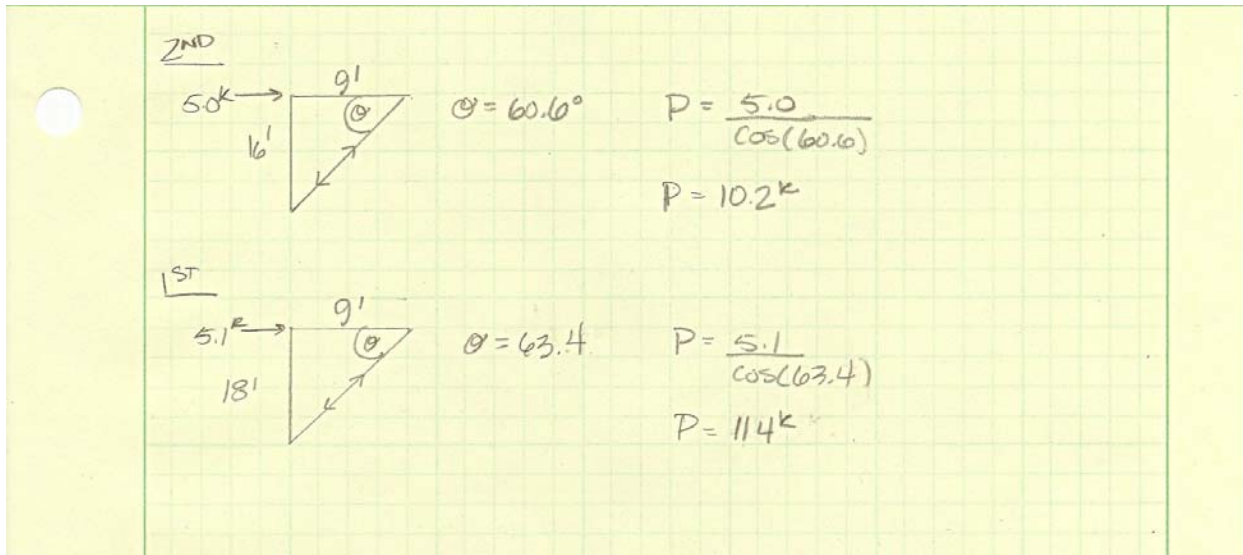 2ND
5.0k
9'
16'
θ
θ = 60.6°
P = 5.0
cos(60.6)
P = 10.2k
1ST
5.1k
9'
18'
θ
θ = 63.4
P = 5.1
cos(63.4)
P = 114k